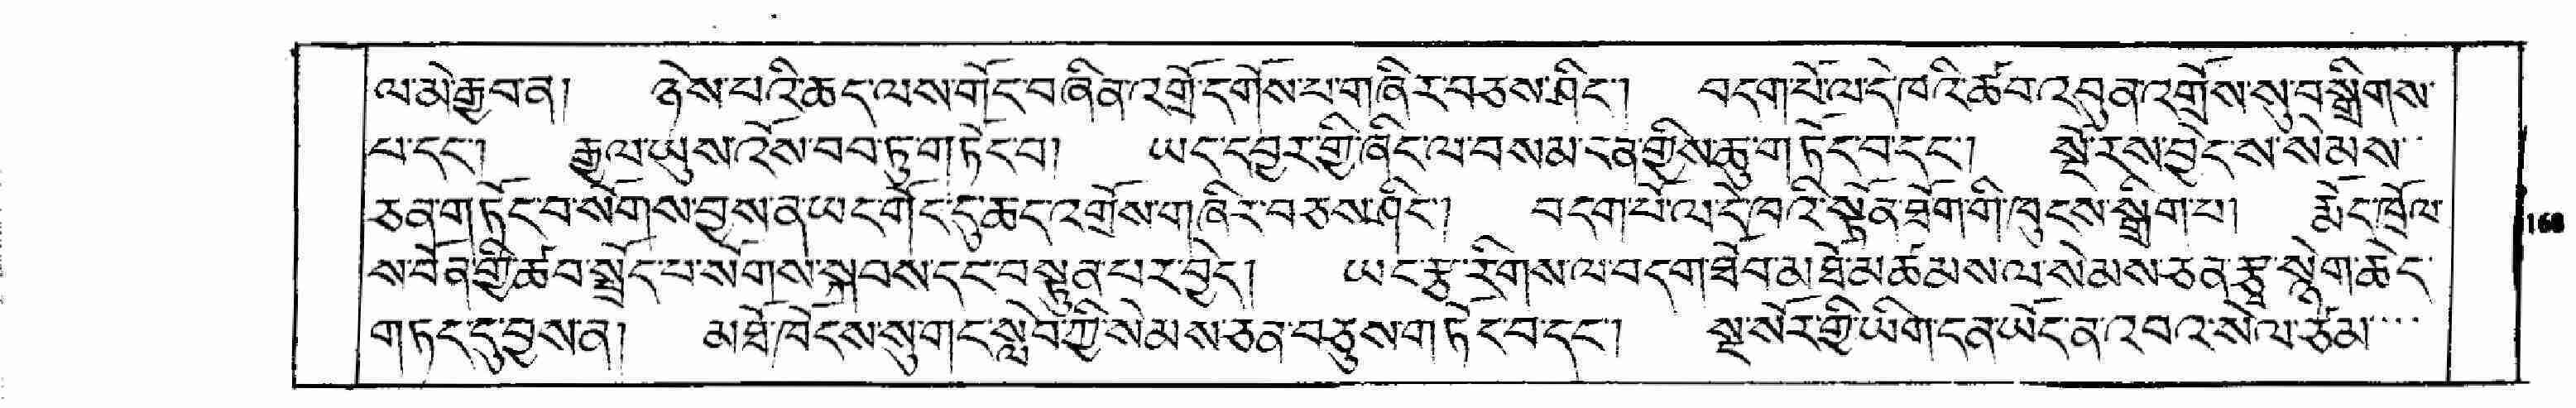 ལ་མེ་རྒྱབ་ན། ཉེས་པའི་ཆད་ལས་གོང་བཞིན་འགྲོ་དགོས་པ་གཞིར་བཅས་ཤིང་། བདག་པོ་ལ་དེ་ཁའི་ཚབ་འབུན་འགྲོས་སུ་བསྒྲིགས་
པ་དང་། རྒྱལ་ཡུས་འོས་བབ་ཏུ་གཏོང་བ། ཡང་དབྱར་གྱི་ཞིང་ལ་བསམ་ངན་གྱིས་ཆུ་གཏོང་བ་དང་། སྔོ་རས་བྱེད་ས་སེམས་
ཅན་གཏོང་བ་སོགས་བྱས་ན་ཡང་གོང་དུ་ཆད་འགྲོས་གཞིར་བཅས་ཤིང་། བདག་པོ་ལ་དེ་ཁའི་སྟོན་ཐོག་གི་ཁུངས་སྒྲིག་པ། རྨོད་ཁྲོལ་
ས་བོན་གྱི་ཚབ་སྤྲོད་པ་སོགས་སྐབས་དང་བསྟུན་པར་བྱེད། ཡང་རྩྭ་རིགས་ལ་བདག་ཐོབ་མཐོ་མཚམས་ལ་སེམས་ཅན་རྩྭ་སྙེག་ཆེད་
གཏད་དུ་བྱས་ན། མཐོ་ཁོངས་སུ་གང་སླེབ་ཀྱི་སེམས་ཅན་བཅུས་གཏོང་བ་དང་། སྔ་སོར་གྱི་ཡིག་དན་ཡོད་ན་འབའ་སེལ་ཙམ་
160